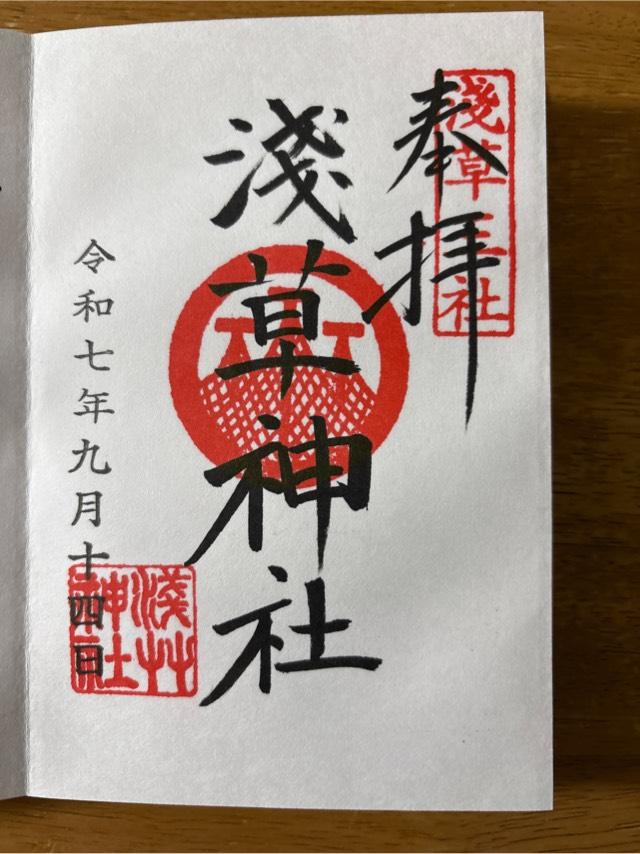 奉拝
淺草三社
淺草神社
令和七年九月十四日
淺艸
神社